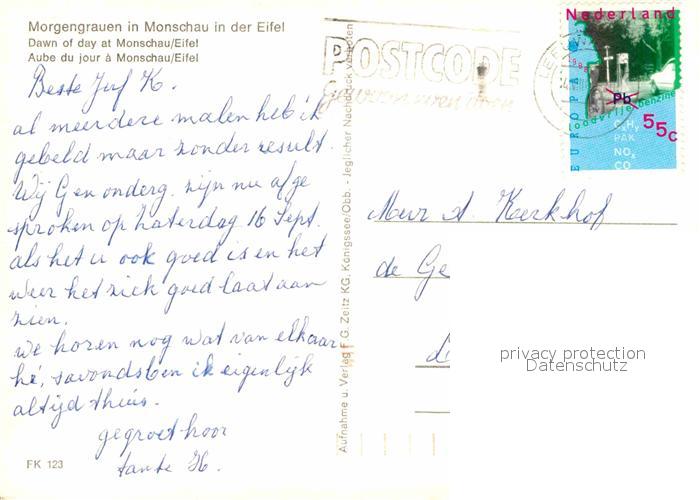 Morgengrauen in Monschau in der Eifel
Dawn of day at Monschau/Eifel
Aube du jour à Monschau/Eifel
Beste Juf K.
al meerdere malen heb ik
gebeld maar zonder resultaat.
Wij G en onderg. zijn nu afge
sproken op Zaterdag 16 Sept.
als het u ook goed is en het
weer het zich goed laat aan
zien.
we horen nog wat van elkaar
hé, savonds ben ik eigenlijk
altijd thuis.
gegroet hoor
tante H.
FK 123
Aufnahme u. Verlag F. G. Zeitz KG, Königssee/Obb. - Jeglicher Nachdruck verboten
POSTCODE
Nederland
EUROPA
1988
Pb
loodvrije benzine
55c
CxHy
PAK
NOx
CO
Mevr A. Kerkhof
de Ge
d
privacy protection
Datenschutz